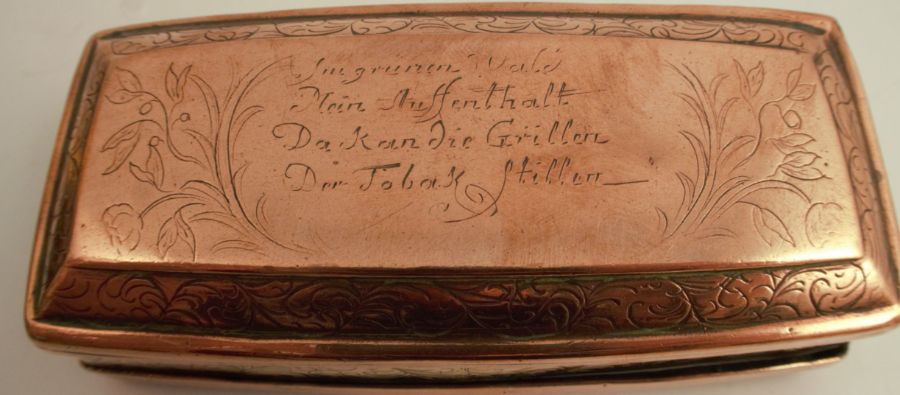 Im grünen Wald
Mein Auffenthalt
Da kan die Grillen
Der Tobak stillen